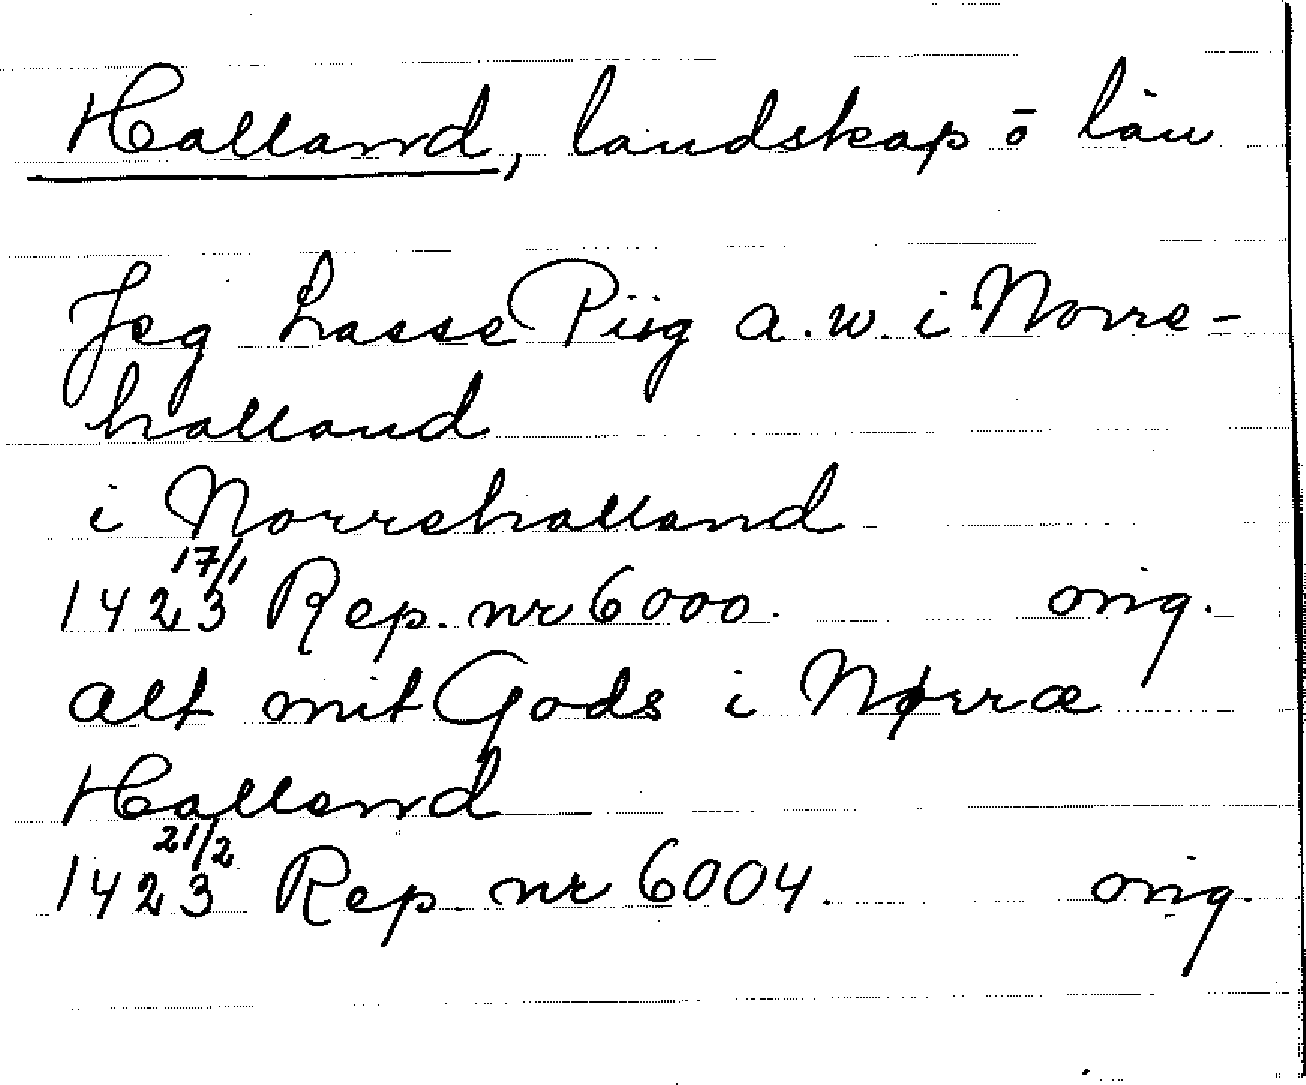 Halland, landskap ō län
Jeg Lasse Piig a.w. i Norre-
halland
i Norrehalland
17/1
1423 Rep. nr 6000. orig.
alt mit Gods i Nørræ
Halland
21/2
1423 Rep nr 6004. orig.